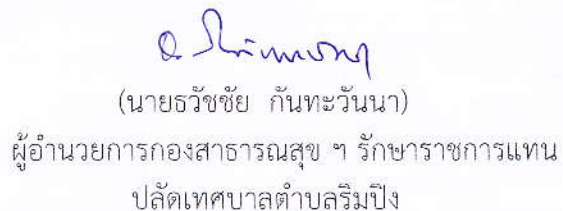 (นายธวัชชัย กันทะวันนา)
ผู้อำนวยการกองสาธารณสุข ฯ รักษาราชการแทน
ปลัดเทศบาลตำบลริมปิง